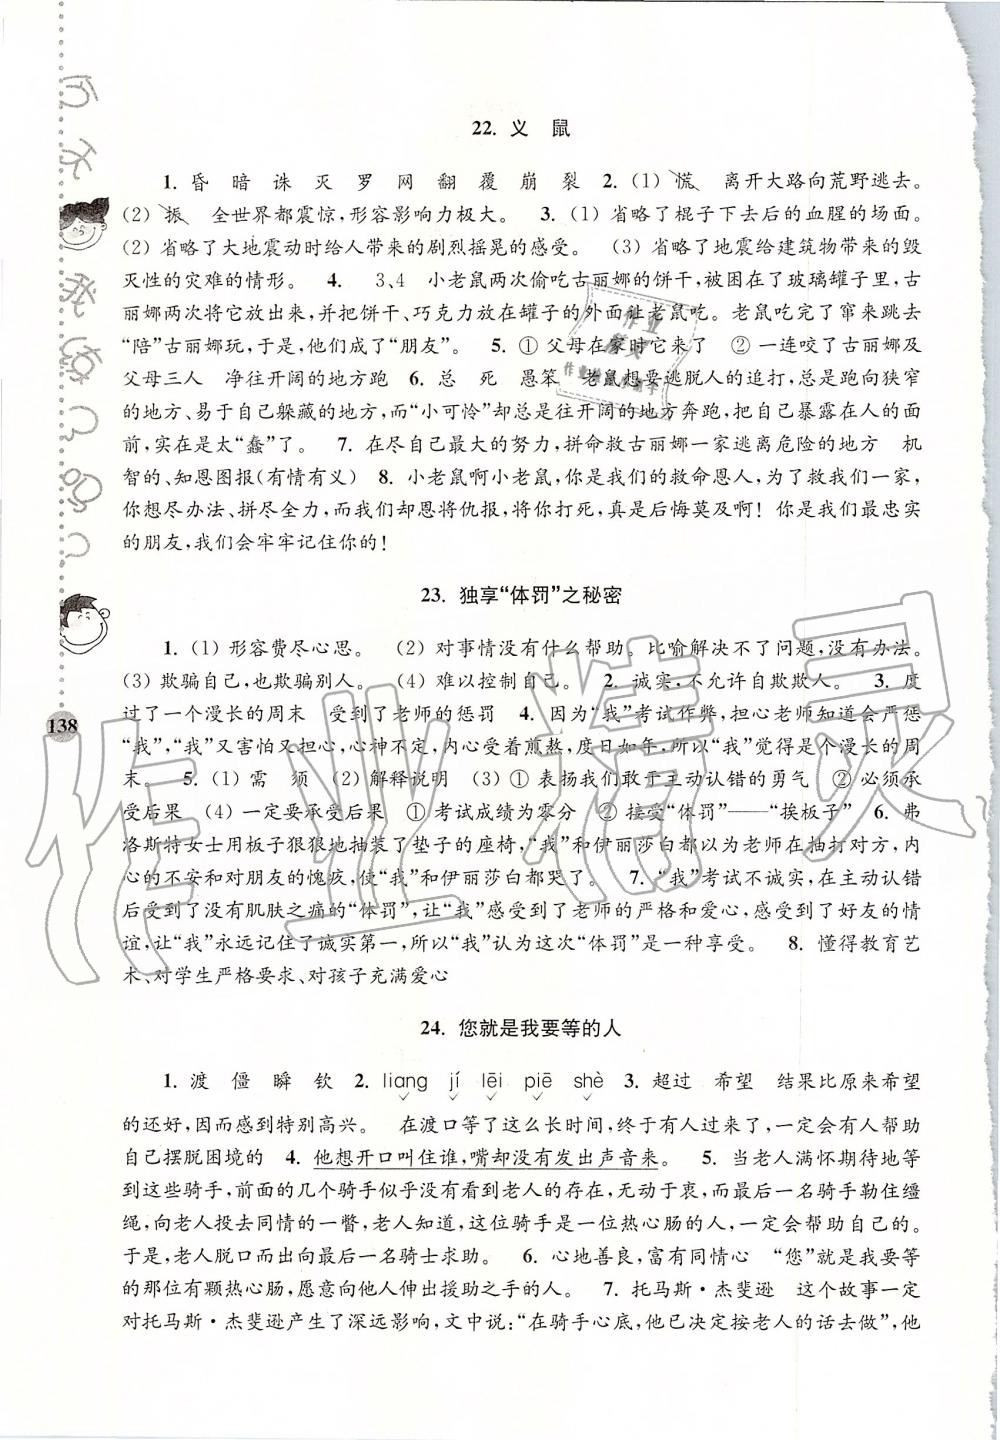 22. 义 鼠
1. 昏 暗 诛 灭 罗 网 翻 覆 崩 裂 2. (1) 慌 离开大路向荒野逃去。
(2) 振 全世界都震惊,形容影响力极大。 3. (1) 省略了棍子下去后的血腥的场面。
(2) 省略了大地震动时给人带来的剧烈摇晃的感受。 (3) 省略了地震给建筑物带来的毁
灭性的灾难的情形。 4. 3、4 小老鼠两次偷吃古丽娜的饼干,被困在了玻璃罐子里,古
丽娜两次将它放出来,并把饼干、巧克力放在罐子的外面让老鼠吃。老鼠吃完了窜来跳去
“陪”古丽娜玩,于是,他们成了“朋友”。 5. ① 父母在家时它来了 ② 一连咬了古丽娜及
父母三人 净往开阔的地方跑 6. 总 死 愚笨 老鼠想要逃脱人的追打,总是跑向狭窄
的地方、易于自己躲藏的地方,而“小可怜”却总是往开阔的地方奔跑,把自己暴露在人的面
前,实在是太“蠢”了。 7. 在尽自己最大的努力,拼命救古丽娜一家逃离危险的地方 机
智的、知恩图报(有情有义) 8. 小老鼠啊小老鼠,你是我们的救命恩人,为了我们一家,
你想尽办法、拼尽全力,而我们却恩将仇报,将你打死,真是后悔莫及啊!你是我们最忠实
的朋友,我们会牢牢记住你的!
23. 独享“体罚”之秘密
1. (1) 形容费尽心思。 (2) 对事情没有什么帮助。比喻解决不了问题,没有办法。
(3) 欺骗自己,也欺骗别人。 (4) 难以控制自己。 2. 诚实,不允许自欺欺人。 3. 度
过了一个漫长的周末 受到了老师的惩罚 4. 因为“我”考试作弊,担心老师知道会严惩
“我”,“我”又害怕又担心,心神不定,内心受着煎熬,度日如年,所以“我”觉得是个漫长的周
末。 5. (1) 需 须 (2) 解释说明 (3) ① 表扬我们敢于主动认错的勇气 ② 必须承
受后果 (4) 一定要承受后果 ① 考试成绩为零分 ② 接受“体罚”——“挨板子” 6. 弗
洛斯特女士用板子狠狠地抽装了垫子的座椅,“我”和伊丽莎白都以为老师在抽打对方,内
心的不安和对朋友的愧疚,使“我”和伊丽莎白都哭了。 7. “我”考试不诚实,在主动认错
后受到了没有肌肤之痛的“体罚”,让“我”感受到了老师的严格和爱心,感受到了好友的情
谊,让“我”永远记住了诚实第一,所以“我”认为这次“体罚”是一种享受。 8. 懂得教育艺
术、对学生严格要求、对孩子充满爱心
24. 您就是我要等的人
1. 渡 僵 瞬 钦 2. liang jí lēi piē shè 3. 超过 希望 结果比原来希望
的还好,因此感到特别高兴。 在渡口等了这么长时间,终于有人过来了,一定会有人帮助
自己摆脱困境的 4. 他想开口叫住谁,嘴却没有发出声音来。 5. 当老人满怀期待地等
到这些骑手,前面的几个骑手似乎没有看到老人的存在,无动于衷,而最后一名骑手勒住缰
绳,向老人投去同情的一瞥,老人知道,这位骑手是一位热心肠的人,一定会帮助自己的。
于是,老人脱口而出向最后一名骑士求助。 6. 心地善良,富有同情心 “您”就是我要等
的那位有颗热心肠,愿意向他人伸出援助之手的人。 7. 托马斯·杰斐逊 这个故事一定
对托马斯·杰斐逊产生了深远影响,文中说:“在骑手心底,他已决定按老人的话去做”,他
138
作业精灵